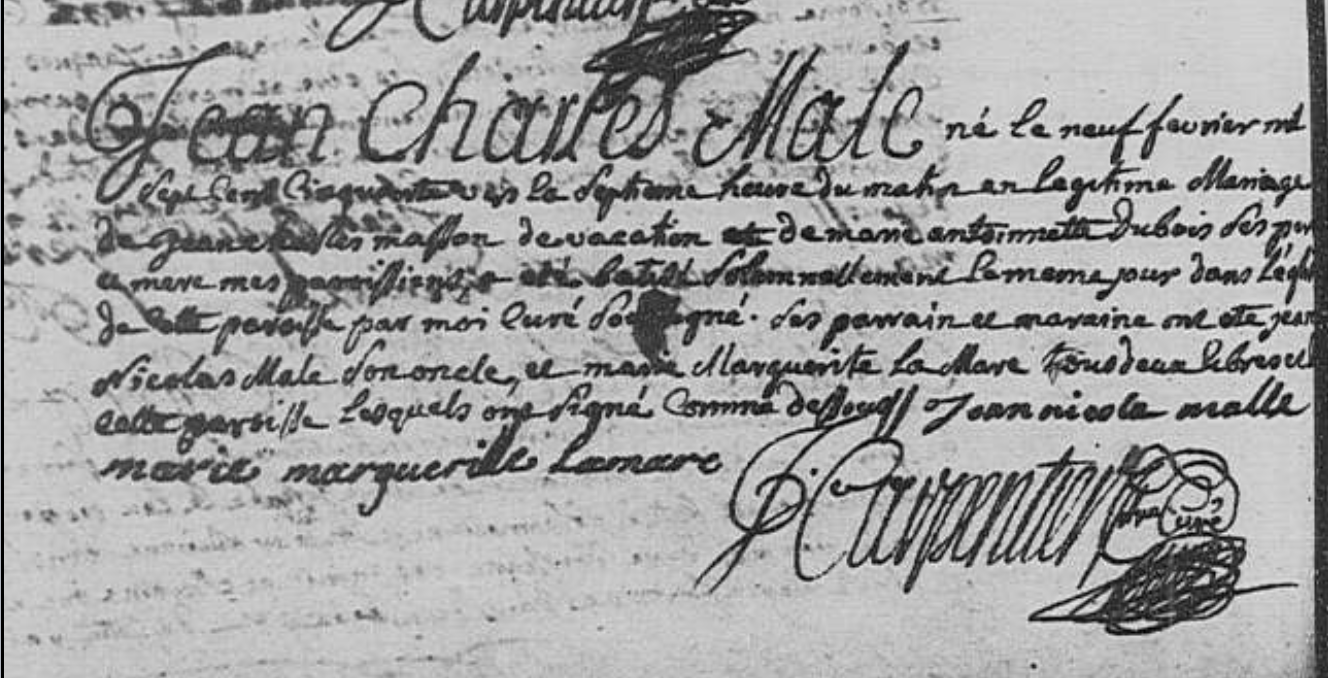 Carpentier
Jean Charles Male né le neuf fevrier mil
Sept Cent Cinquante vers la Septieme heure du matin en legitime Mariage
de Jean Charles masson de vacation et de marie antoinnette Dubois Ses pere
et mere mes paroissiens, a eté batisé Solemnellement le meme jour dans l'égli
de cette paroisse par moi Curé Soussigné. Ses parrain et maraine ont eté jean
Nicolas Male Son oncle, et marie Marguerite la Mare tous deux libres et de
cette paroisse lesquels ont Signé Comme dessous Jean nicola malle
marie marguerille Lamare
J. Carpentier Curé